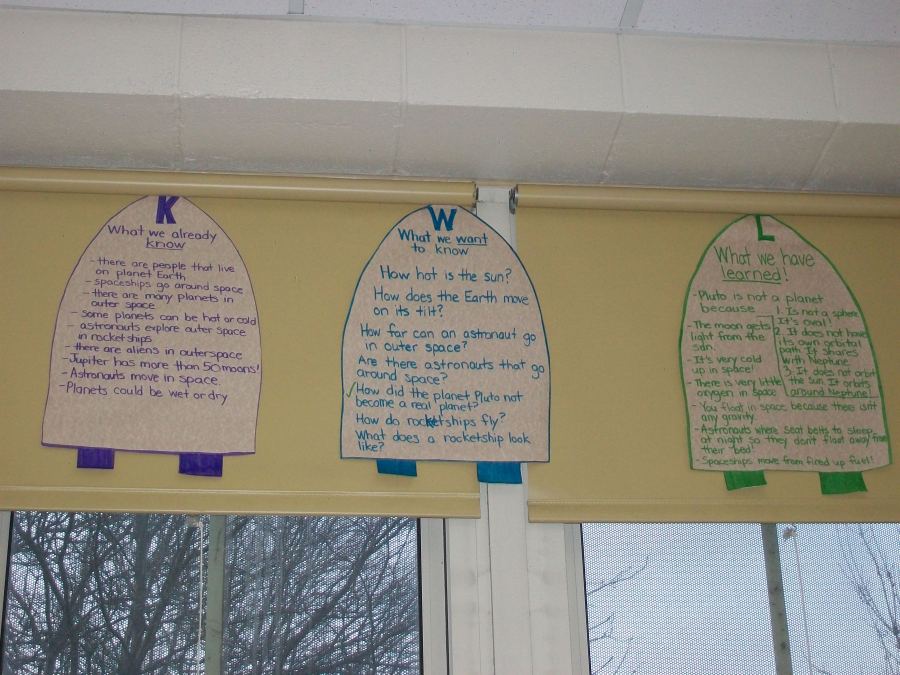 K
What we already
know
- there are people that live
on planet Earth
- spaceships go around space
- there are many planets in
outer space
- some planets can be hot or cold
- astronauts explore outer space
in rocketships
- there are aliens in outerspace
- Jupiter has more than 50 moons!
- Astronauts move in space.
- Planets could be wet or dry
W
What we want
to know
How hot is the sun?
How does the Earth move
on its tilt?
How far can an astronaut go
in outer space?
Are there astronauts that go
around space?
✓How did the planet Pluto not
become a real planet?
How do rocketships fly?
What does a rocketship look
like?
L
What we have
learned!
- Pluto is not a planet
because
1. Is not a sphere
It's oval!
2. It does not have
its own orbital
path It shares
with Neptune
3. It does not orbit
the sun It orbits
around Neptune!
- The moon gets
light from the
sun
- It's very cold
up in space!
- There is very little
oxygen in space
- You float in space because there isn't
any gravity
- Astronauts where seat belts to sleep
at night so they don't float away from
their bed!
- Spaceships move from fired up fuel!